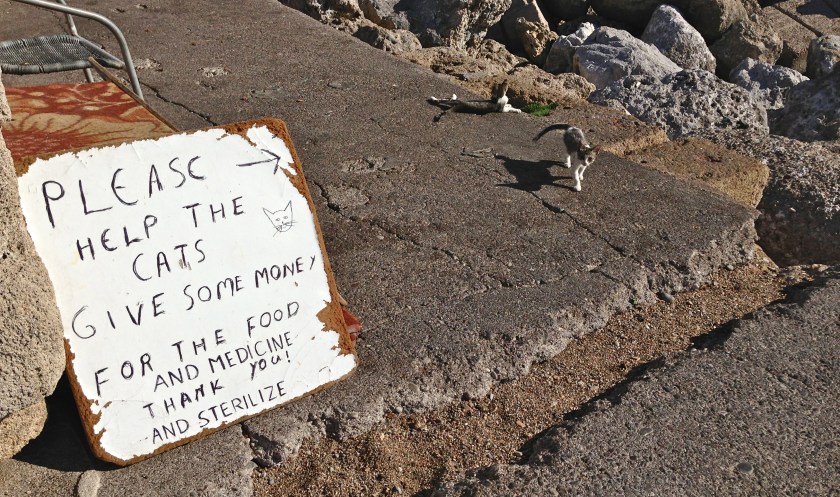 PLEASE
HELP THE
CATS
GIVE SOME MONEY
FOR THE FOOD
AND MEDICINE
THANK YOU!
AND STERILIZE